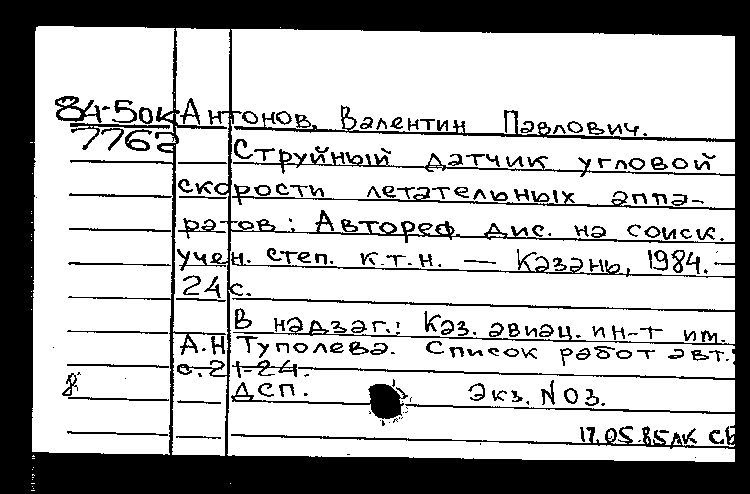 84-5ок Антонов, Валентин Павлович.
7762
Струйный датчик угловой
скорости летательных аппа-
ратов: Автореф. дис. на соиск.
учен. степ. к.т.н. — Казань, 1984. —
24 с.
В надзаг.: Каз. авиац. ин-т им.
А.Н. Туполева. Список работ авт.:
с. 21-24.
ДСП. Экз. N 03.
17.05.85 ЛК СБ